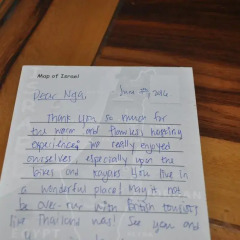 Map of Israel
Dear Nga,
Thank you so much for
the warm and flawless
experience. We really enjoyed
ourselves, especially upon the
bikes and kayaks. You live in
a wonderful place! May it not
be over-run with British tourists
like Thailand has! See you and